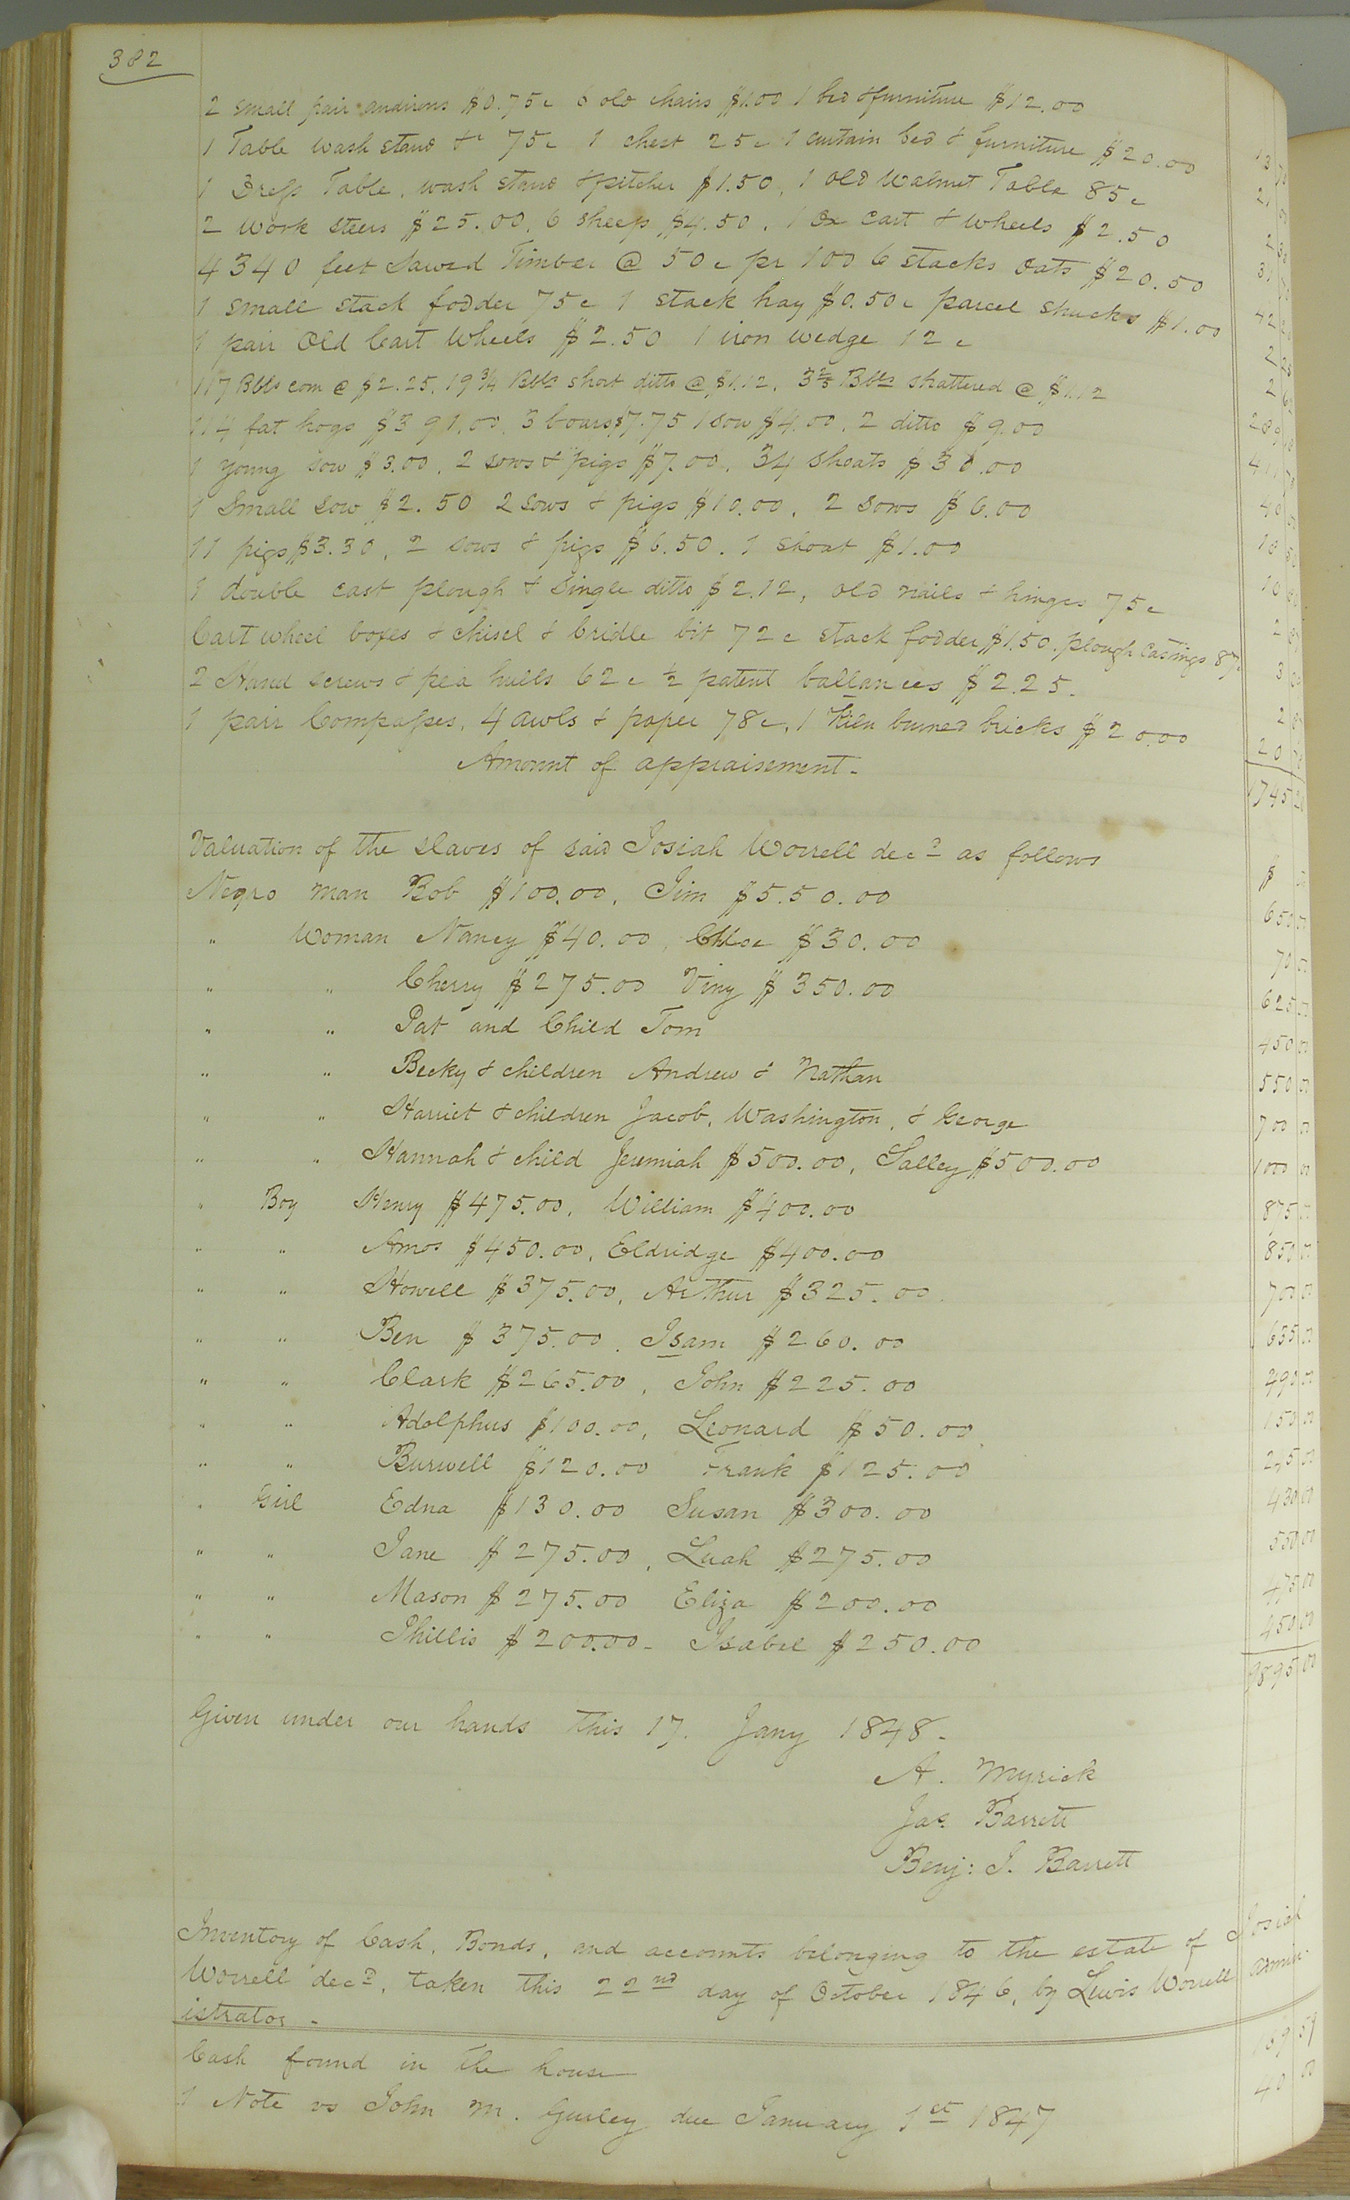 382
2 small pair andirons $0.75c 6 old chairs $1.00 1 bed & furniture $12.00
1 Table wash stand &c 75c 1 chest 25c 1 curtain bed & furniture $20.00
1 Dress Table, wash stand & pitcher $1.50, 1 old Walnut Table 85c
2 Work Steers $25.00, 6 sheep $4.50, 1 Ox Cart & Wheels $2.50
4340 feet Sawed Timber @ 50c pr 100 6 stacks Oats $20.50
1 small stack fodder 75c 1 stack hay $0.50c parcel shucks $1.00
1 pair Old Cart Wheels $2.50 1 iron wedge 12c
117 Bbls corn @ $2.25, 19¾ Bbls short ditto @ $1.12, 3⅖ Bbls shattered @ $1.12
114 fat hogs $391.00, 3 boars $7.75 1 sow $4.00, 2 ditto $9.00
1 Young sow $3.00, 2 sows & pigs $7.00, 34 shoats $30.00
1 Small sow $2.50 2 sows & pigs $10.00, 2 sows $6.00
11 pigs $3.30, 2 sows & pigs $6.50. 1 shoat $1.00
1 double cast plough & single ditto $2.12, old nails & hinges 75c
Cart wheel boxes & chisel & bridle bit 72c stack fodder $1.50, plough castings 87c
2 Hand screws & pea hulls 62c ½ patent ballances $2.25.
1 pair Compasses, 4 awls & paper 78c, 1 Kiln burned bricks $20.00
Amount of appraisement - 1745
Valuation of the slaves of said Josiah Worrell decd as follows $
Negro man Bob $100.00, Jim $550.00 650 00
" Woman Nancy $40.00, Chloe $30.00 70 00
" " Cherry $275.00 Viny $350.00 625 00
" " Pat and Child Tom 450 00
" " Becky & children Andrew & Nathan 550 00
" " Harriet & children Jacob, Washington, & George 700 00
" " Hannah & child Jeremiah $500.00, Salley $500.00 1000 00
" Boy Henry $475.00, William $400.00 875 00
" " Amos $450.00, Eldridge $400.00 850 00
" " Howell $375.00, Arthur $325.00 700 00
" " Ben $375.00. Isam $260.00 635 00
" " Clark $265.00, John $225.00 490 00
" " Adolphus $100.00, Leonard $50.00 150 00
" " Burwell $120.00 Frank $125.00 245 00
" Girl Edna $130.00 Susan $300.00 430 00
" " Jane $275.00, Leah $275.00 550 00
" " Mason $275.00 Eliza $200.00 475 00
" " Phillis $200.00 - Isabel $250.00 450 00
9895 00
Given under our hands this 17. Jany 1848 -
A. Myrick
Jas. Barrett
Benj: J. Barrett
Inventory of Cash, Bonds, and accounts belonging to the estate of Josiah
Worrell decd, taken this 22nd day of October 1846, by Lewis Worrell admin-
istrator -
Cash found in the house 159 59
1 Note vs John M. Gurley due January 1st 1847 40 00